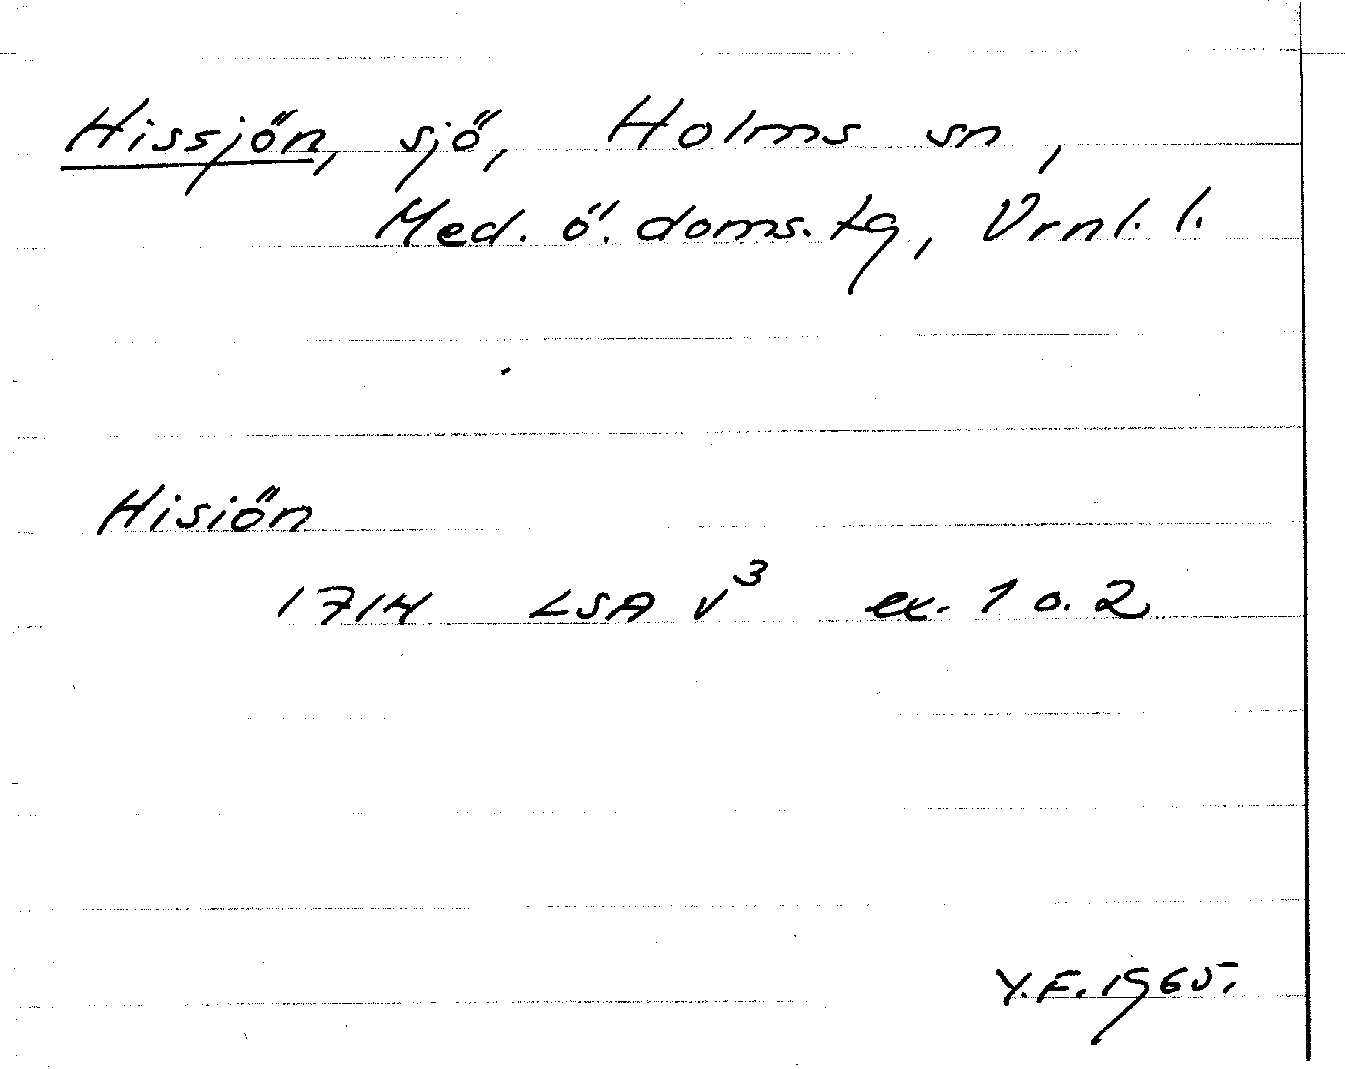 Hissjön, sjö, Holms sn,
Med. ö. doms. tg, Vrnl. l.
Hisiön
1714 LSA V³ ex. 1 o. 2
Y.F. 1965.